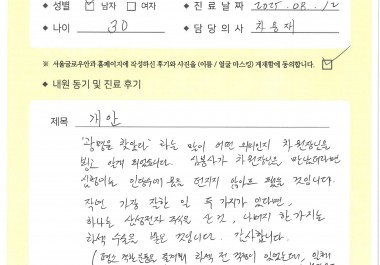 ◆ 성별 ✓ 남자 여자 ◆ 진료날짜 2025.08.12
◆ 나이 30 ◆ 담당의사 차용재
※ 서울글로우안과 홈페이지에 작성하신 후기와 사진을 (이름 / 얼굴 마스킹) 게재함에 동의합니다. ✓
◆ 내원 동기 및 진료 후기
제목 개안
'광명을 찾았다' 라는 말이 어떤 의미인지 차원장님을
뵙고 알게 되었습니다. 심봉사가 차원장님을 만났더라면
심청이는 인당수에 몸을 던지지 않아도 됐을 것입니다.
작년 가장 잘한 일 두 가지가 있다면,
하나는 삼성전자 주식을 산 것, 나머지 한 가지는
라섹 수술을 받은 것입니다. 감사합니다.
라섹 전 걱정이 있었는데,